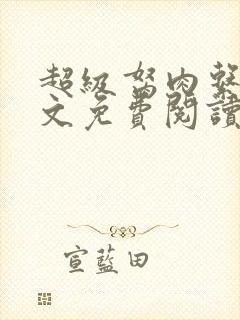 超級肉
文免費閱讀
宣藍田